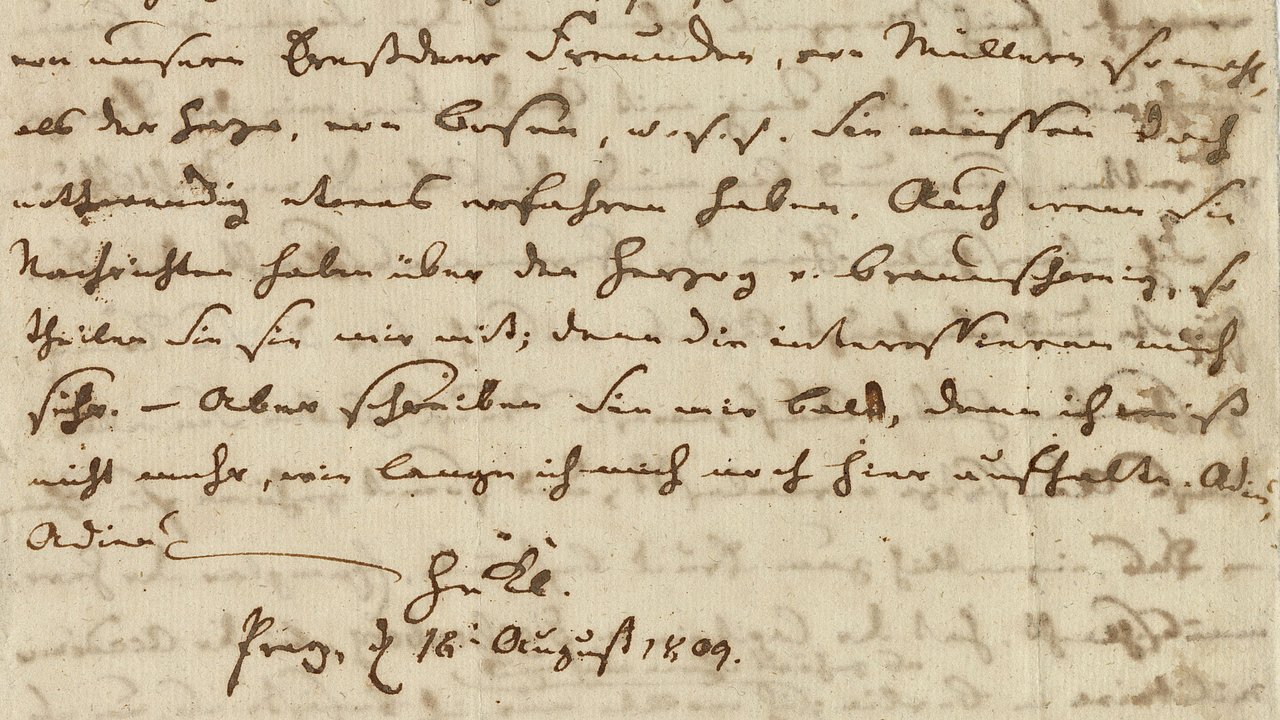 von unsern Dresdener Freunden, von Müllern so wohl,
als der Herze, von Bosen, u. s. f. Sie müssen doch
nothwendig etwas erfahren haben. Auch wenn Sie
Nachrichten haben über den Herzog v. Braunschweig, so
theilen Sie sie mir mit; denn die interessieren mich
sehr. – Aber schreiben Sie mir bald, denn ich weiß
nicht mehr, wie lange ich mich noch hier aufhalte. Adieu,
Adieu
Prag, d 18. August 1809.